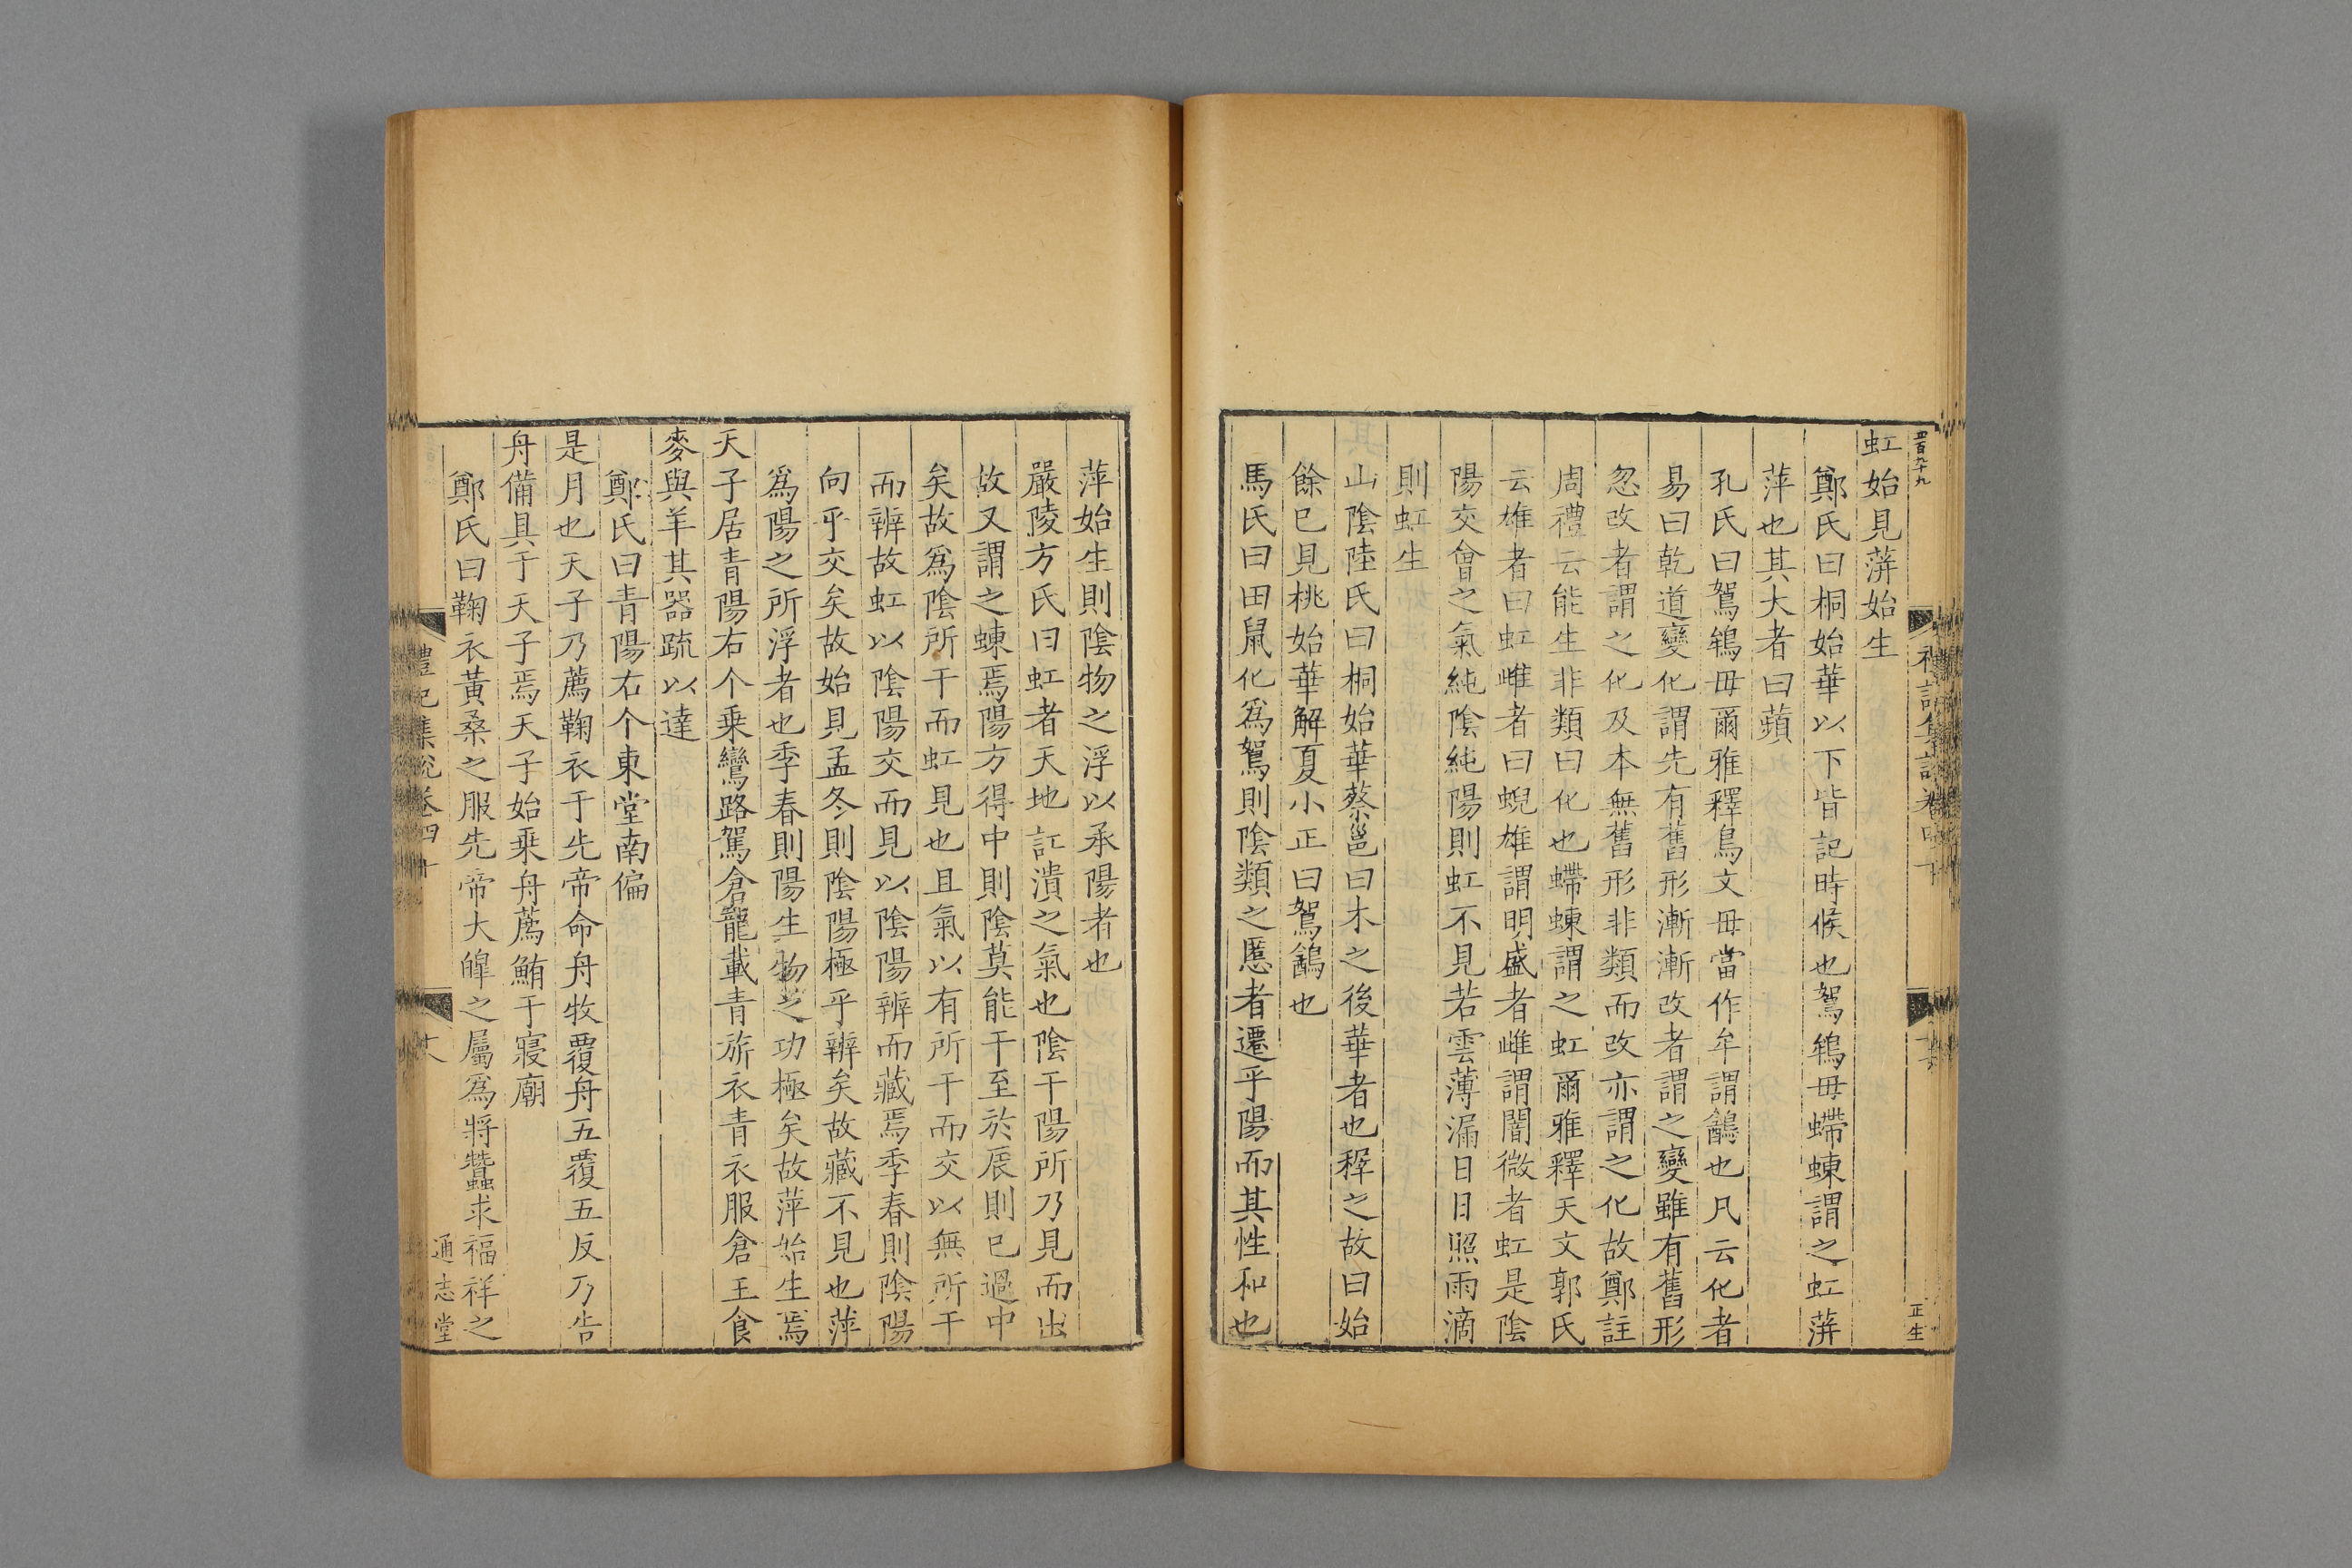 虹始見蓱始生
鄭氏曰桐始華以下皆記時候也鴽鴾毋螮蝀謂之虹蓱
萍也其大者曰蘋
孔氏曰鴽鴾毋爾雅釋鳥文毋當作牟謂鶕也凡云化者
易曰乾道變化謂先有舊形漸漸改者謂之變雖有舊形
忽改者謂之化及本無舊形非類而改亦謂之化故鄭註
周禮云能生非類曰化也螮蝀謂之虹爾雅釋天文郭氏
云雄者曰虹雌者曰蜺雄謂明盛者雌謂闇微者虹是陰
陽交會之氣純陰純陽則虹不見若雲薄漏日日照雨滴
則虹生
山陰陸氏曰桐始華蔡邕曰木之後華者也稺之故曰始
餘已見桃始華解夏小正曰鴽鶕也
馬氏曰田鼠化爲鴽則陰類之慝者遷乎陽而其性和也
萍始生則陰物之浮以承陽者也
嚴陵方氏曰虹者天地訌潰之氣也陰干陽所乃見而出
故又謂之蝀焉陽方得中則陰莫能干至於辰則已過中
矣故爲陰所干而虹見也且氣以有所干而交以無所干
而辨故虹以陰陽交而見以陰陽辨而藏焉季春則陰陽
向乎交矣故始見孟冬則陰陽極乎辨矣故藏不見也萍
爲陽之所浮者也季春則陽生物之功極矣故萍始生焉
天子居青陽右个乘鸞路駕倉龍載青旂衣青衣服倉玉食
麥與羊其器疏以達
鄭氏曰青陽右个東堂南偏
是月也天子乃薦鞠衣于先帝命舟牧覆舟五覆五反乃告
舟備具于天子焉天子始乘舟薦鮪于寢廟
鄭氏曰鞠衣黃桑之服先帝大皥之屬爲將蠶求福祥之
禮記集說卷四十
通志堂